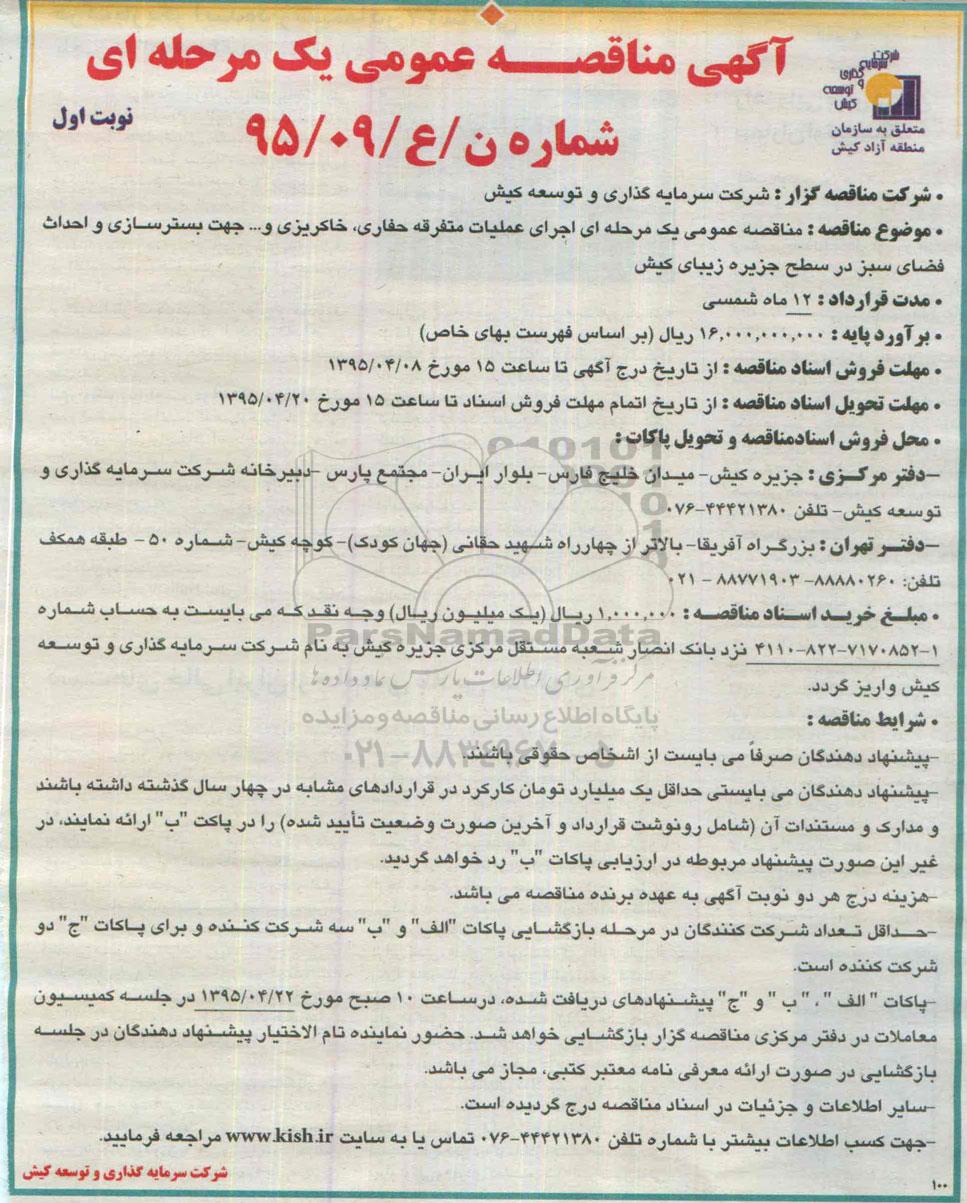 آگهی مناقصه عمومی یک مرحله ای
شماره ن/ع/۹۵/۰۹
نوبت اول
شرکت
سرمایه
گذاری
و
توسعه
کیش
متعلق به سازمان
منطقه آزاد کیش
• شرکت مناقصه گزار : شرکت سرمایه گذاری و توسعه کیش
• موضوع مناقصه : مناقصه عمومی یک مرحله ای اجرای عملیات متفرقه حفاری، خاکریزی و... جهت بسترسازی و احداث
فضای سبز در سطح جزیره زیبای کیش
• مدت قرارداد : ۱۲ ماه شمسی
• برآورد پایه : ۱۶,۰۰۰,۰۰۰,۰۰۰ ریال (بر اساس فهرست بهای خاص)
• مهلت فروش اسناد مناقصه : از تاریخ درج آگهی تا ساعت ۱۵ مورخ ۱۳۹۵/۰۴/۰۸
• مهلت تحویل اسناد مناقصه : از تاریخ اتمام مهلت فروش اسناد تا ساعت ۱۵ مورخ ۱۳۹۵/۰۴/۲۰
• محل فروش اسنادمناقصه و تحویل پاکات :
–دفتر مرکزی : جزیره کیش- میدان خلیج فارس- بلوار ایران- مجتمع پارس -دبیرخانه شرکت سرمایه گذاری و
توسعه کیش- تلفن ۴۴۴۲۱۳۸۰-۰۷۶
–دفتر تهران : بزرگراه آفریقا- بالاتر از چهارراه شهید حقانی (جهان کودک)- کوچه کیش- شماره ۵۰ - طبقه همکف
تلفن: ۸۸۸۸۰۲۶۰- ۸۸۷۷۱۹۰۳ - ۰۲۱
• مبلغ خرید اسناد مناقصه : ۱,۰۰۰,۰۰۰ ریال (یک میلیون ریال) وجه نقد که می بایست به حساب شماره
۱-۷۱۷۰۸۵۲-۸۲۲-۴۱۱۰ نزد بانک انصار شعبه مستقل مرکزی جزیره کیش به نام شرکت سرمایه گذاری و توسعه
کیش واریز گردد.
• شرایط مناقصه :
–پیشنهاد دهندگان صرفاً می بایست از اشخاص حقوقی باشند.
–پیشنهاد دهندگان می بایستی حداقل یک میلیارد تومان کارکرد در قراردادهای مشابه در چهار سال گذشته داشته باشند
و مدارک و مستندات آن (شامل رونوشت قرارداد و آخرین صورت وضعیت تأیید شده) را در پاکت "ب" ارائه نمایند، در
غیر این صورت پیشنهاد مربوطه در ارزیابی پاکات "ب" رد خواهد گردید.
–هزینه درج هر دو نوبت آگهی به عهده برنده مناقصه می باشد.
–حداقل تعداد شرکت کنندگان در مرحله بازگشایی پاکات "الف" و "ب" سه شرکت کننده و برای پاکات "ج" دو
شرکت کننده است.
–پاکات " الف " ، " ب " و "ج" پیشنهادهای دریافت شده، درساعت ۱۰ صبح مورخ ۱۳۹۵/۰۴/۲۲ در جلسه کمیسیون
معاملات در دفتر مرکزی مناقصه گزار بازگشایی خواهد شد. حضور نماینده تام الاختیار پیشنهاد دهندگان در جلسه
بازگشایی در صورت ارائه معرفی نامه معتبر کتبی، مجاز می باشد.
–سایر اطلاعات و جزئیات در اسناد مناقصه درج گردیده است.
–جهت کسب اطلاعات بیشتر با شماره تلفن ۴۴۴۲۱۳۸۰-۰۷۶ تماس یا به سایت www.kish.ir مراجعه فرمایید.
شرکت سرمایه گذاری و توسعه کیش
۱۰۰
ParsNamadData
مرکز فرآوری اطلاعات پارس نماد داده ها
پایگاه اطلاع رسانی مناقصه و مزایده